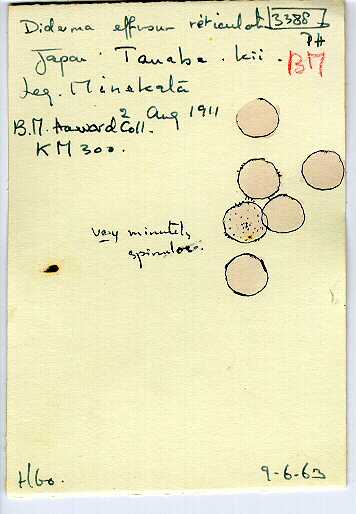 Diderma effusum reticulat 3388
PH
Japan. Tanabe. Kii.
BM
Leg. Minakata
2 Aug 1911
B.M. Coll.
KM 300.
very minutely
spinulose.
H60.
9-6-63